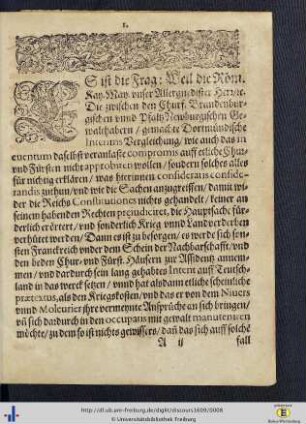 1.
ES ist die Frag: Weil die Röm.
Kay. May. vnser Allergnedigster Herr/ꝛc.
Die zwischen den Churf. Brandenbur-
gischen vnnd Pfaltz Newburgischen Ge-
walthabern/ gemachte Dortmündische
Interims Vergleichung/ wie auch das in
euentum daselbst veranlaste compromis auff etliche Chur-
vnd Fürsten nicht approbiren wollen/ sondern solches alles
für nichtig erklären/ was hierinnen considerans conside-
randis zuthun/ vnd wie die Sachen anzugreiffen/ damit wi-
der die Reichs Constitutiones nichts gehandelt/ keiner an
seinem habenden Rechten præjudiciret, die Hauptsache für-
derlich erörtert/ vnd sonderlich Krieg vnnd Landverderben
verhütet werden/ Dann es ist zu besorgen/ es werde sich son-
sten Franckreich vnder dem Schein der Nachbarschafft/ vnd
den beden Chur- vnd Fürst. Häusern zur Assistentz anneh-
men/ vnd dardurch sein lang gehabtes Intent auff Teutsch-
land in das werck setzen/ vnnd hat alsdann etliche scheinliche
prætextus, als den Kriegskosten/ vnd das er von dem Niuers
vnnd Moleurier jhre vermeynte Ansprüche an sich bringen/
vñ sich dardurch in den occupatis mit gewalt manuteniren
möchte/ zu dem so ist nichts gewissers/ dañ das sich auff solche
A ij
fall
http://dl.ub.uni-freiburg.de/diglit/discours1609/0008
© Universitätsbibliothek Freiburg
Baden-Württemberg